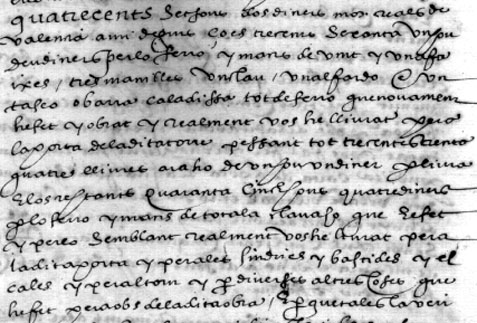 quatrecents Setsous dos diners mor reals de
valencia a mi deguts ço es trecents Setanta un sou
deu diners per lo ferro, y mans de vuit y un
ixes, tres manilles Un clau, Un alfardo e Un
tasco o barra caladissa tot de ferro que novament
hefet y obrat y realment vos he lliurat pera
la porta de la dita torre pessant tot trecentes trenta
quatre lliures a raho de un sou un diner per lliura
E los restants Quaranta Cinch sous quatre diners
per lo ferro y mans de tota la clavaso que he fet
y pereo Semblant realment vos he lliurat pera
la dita porta y peralas y bastides y
cales y peral torn y per diverses altres Coses que
hefet pera obs de la dita obra, E per que tal es la veri